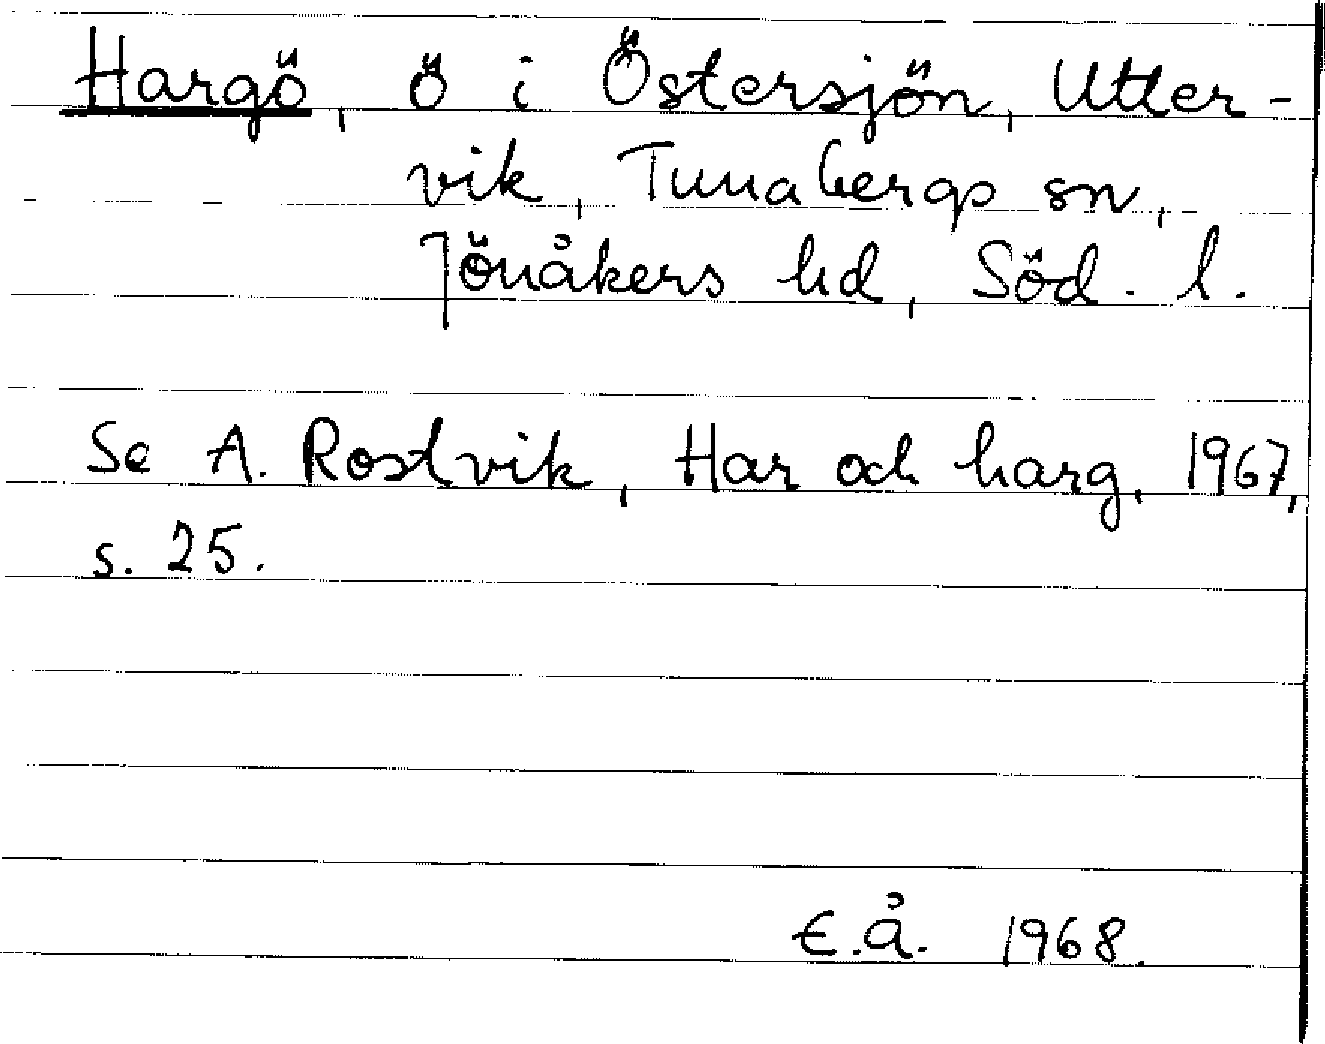 Hargö, ö i Östersjön, Utter-
vik, Tunabergs sn,
Jönåkers hd, Söd. l.
Se A. Rostvik, Har och harg, 1967,
s. 25.
E.Å. 1968.